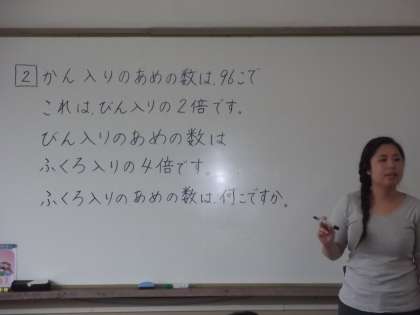 2 かん入りのあめの数は、96こで
これは、びん入りの2倍です。
びん入りのあめの数は
ふくろ入りの4倍です。
ふくろ入りのあめの数は、何こですか。